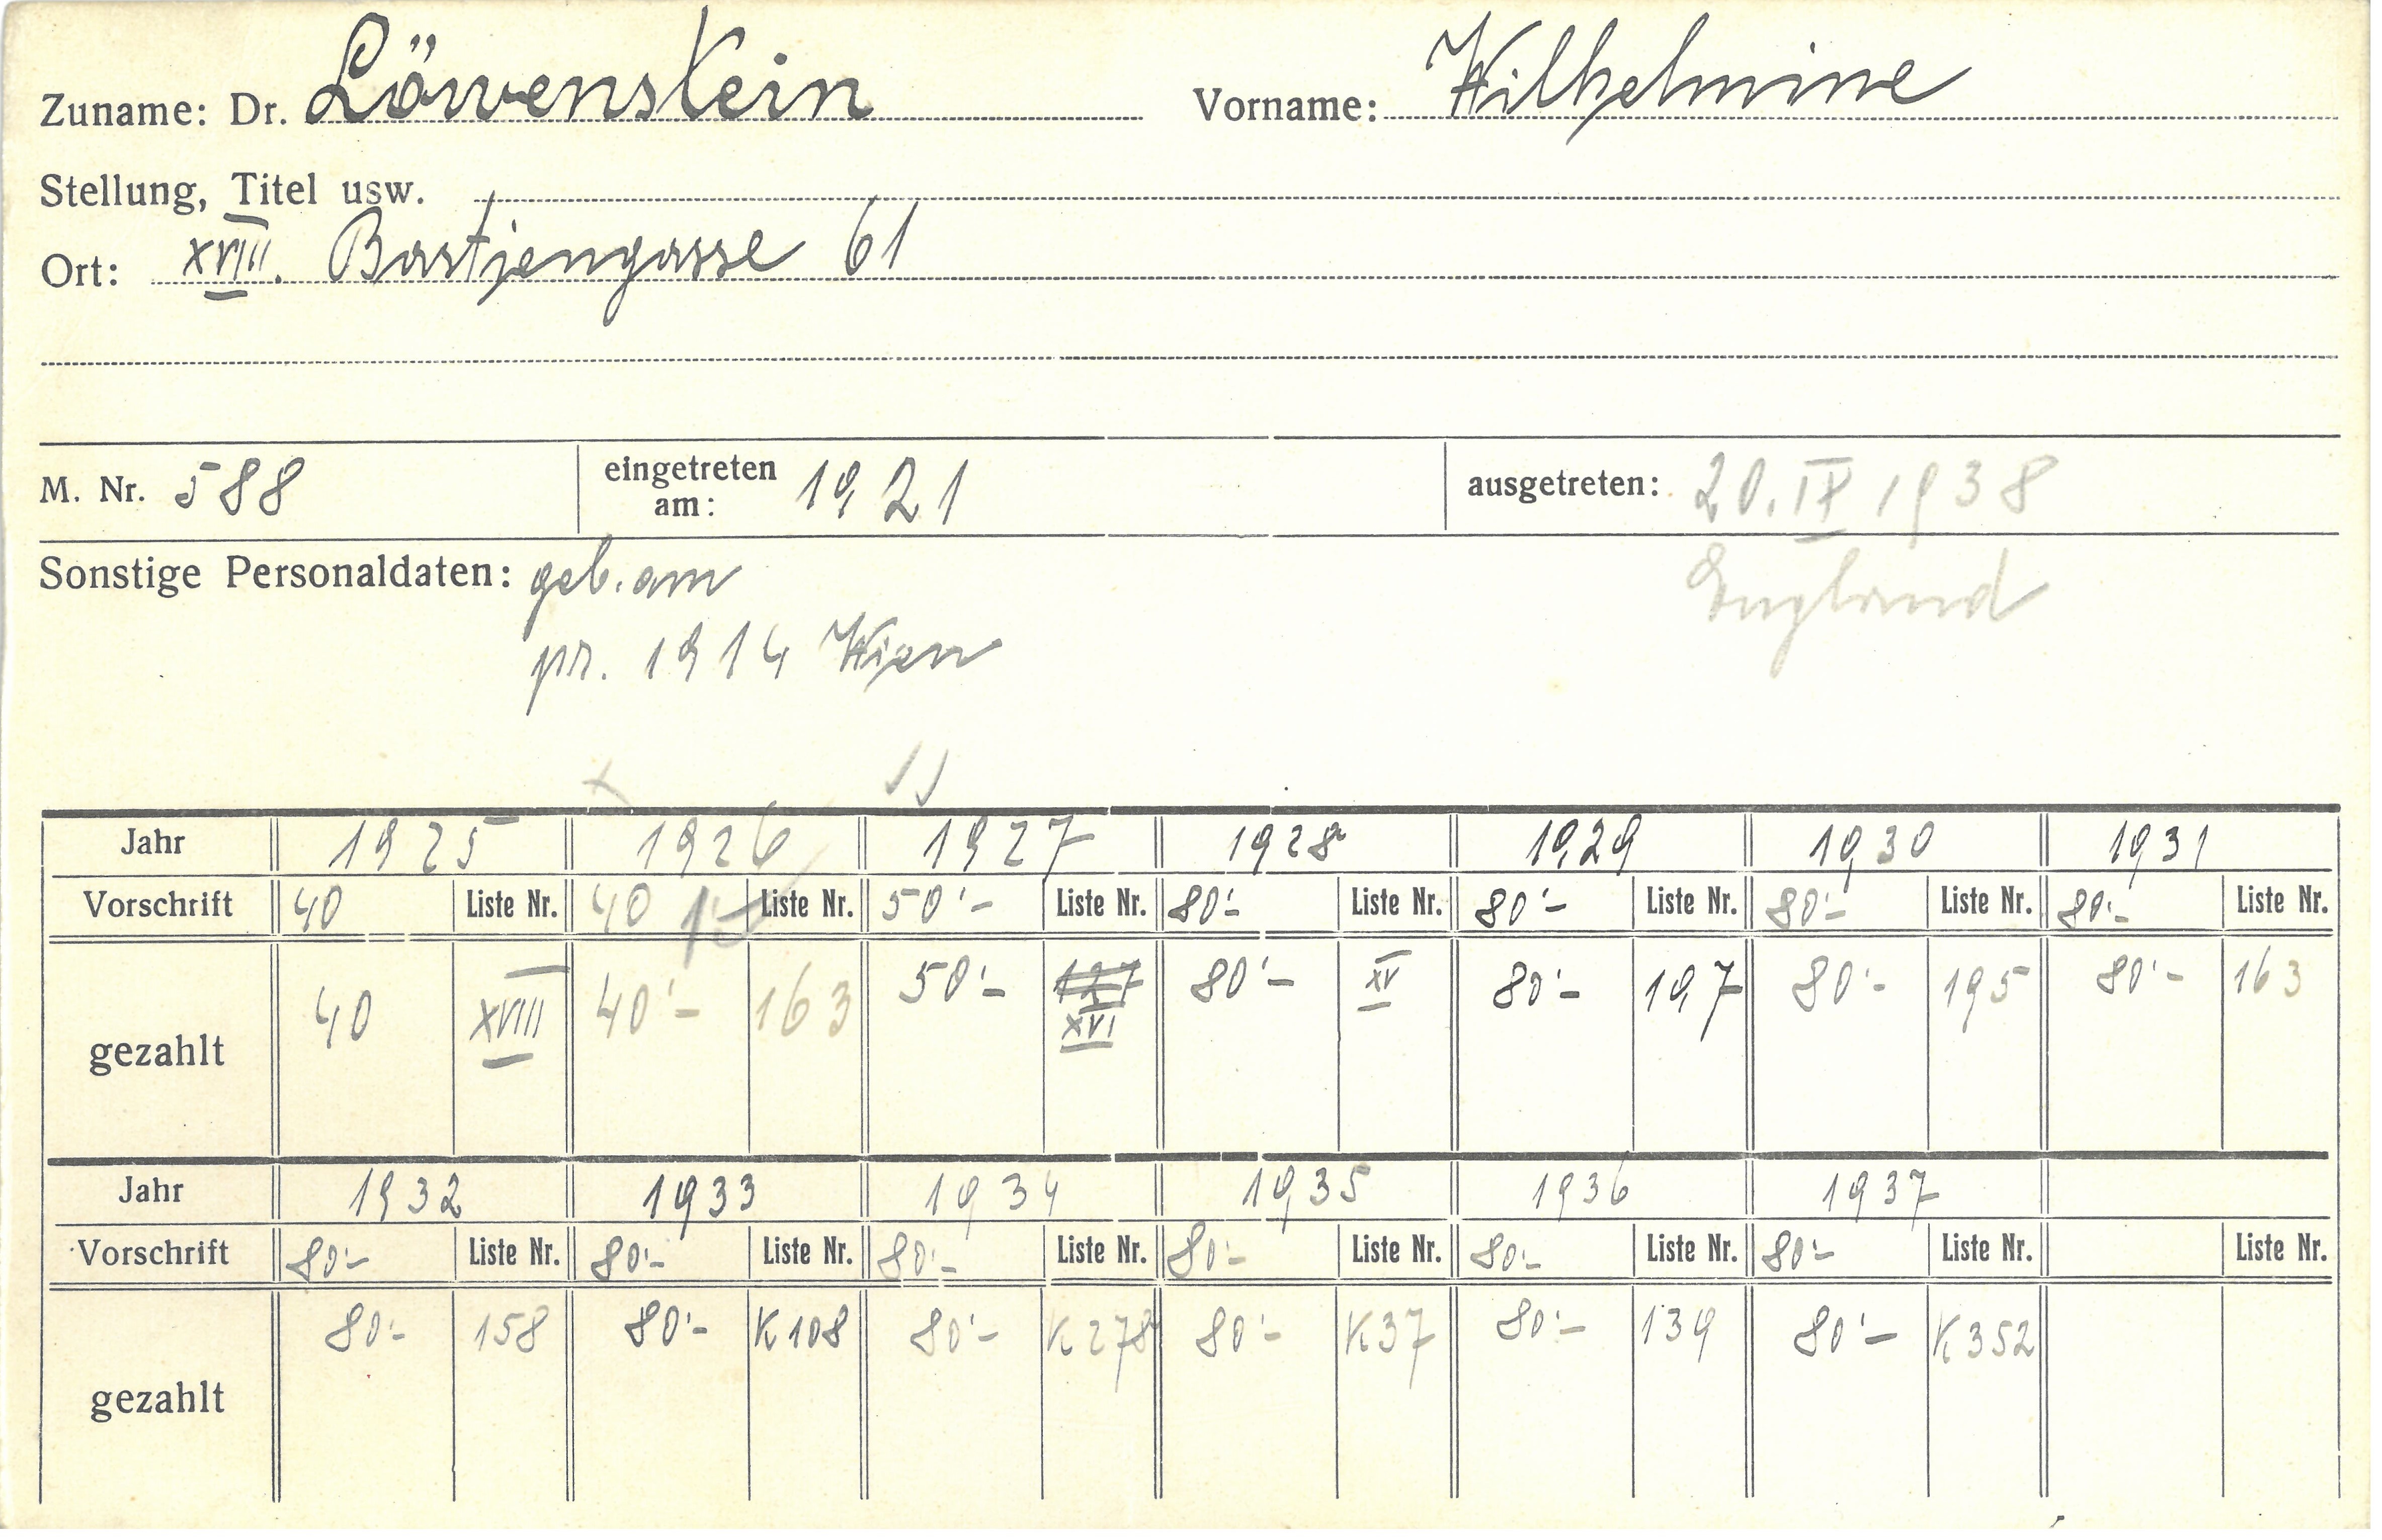 Zuname: Dr. Löwenstein Vorname: Wilhelmine
Stellung, Titel usw.
Ort: XVIII. Bastiengasse 61
M. Nr. 588 eingetreten am: 1921 ausgetreten: 20. IX 1938
England
Sonstige Personaldaten: geb. am
pr. 1914 Wien
Jahr 1925 1926 1927 1928 1929 1930 1931
Vorschrift 40 Liste Nr. 40 15 Liste Nr. 50'- Liste Nr. 80'- Liste Nr. 80'- Liste Nr. 80'- Liste Nr. 80'- Liste Nr.
gezahlt 40 XVIII 40'- 163 50'- 127 XVI 80'- XV 80'- 197 80'- 195 80'- 163
Jahr 1932 1933 1934 1935 1936 1937
Vorschrift 80'- Liste Nr. 80'- Liste Nr. 80'- Liste Nr. 80'- Liste Nr. 80'- Liste Nr. 80'- Liste Nr. Liste Nr.
gezahlt 80'- 158 80'- K 108 80'- K 278 80'- K 37 80'- 139 80'- K 352